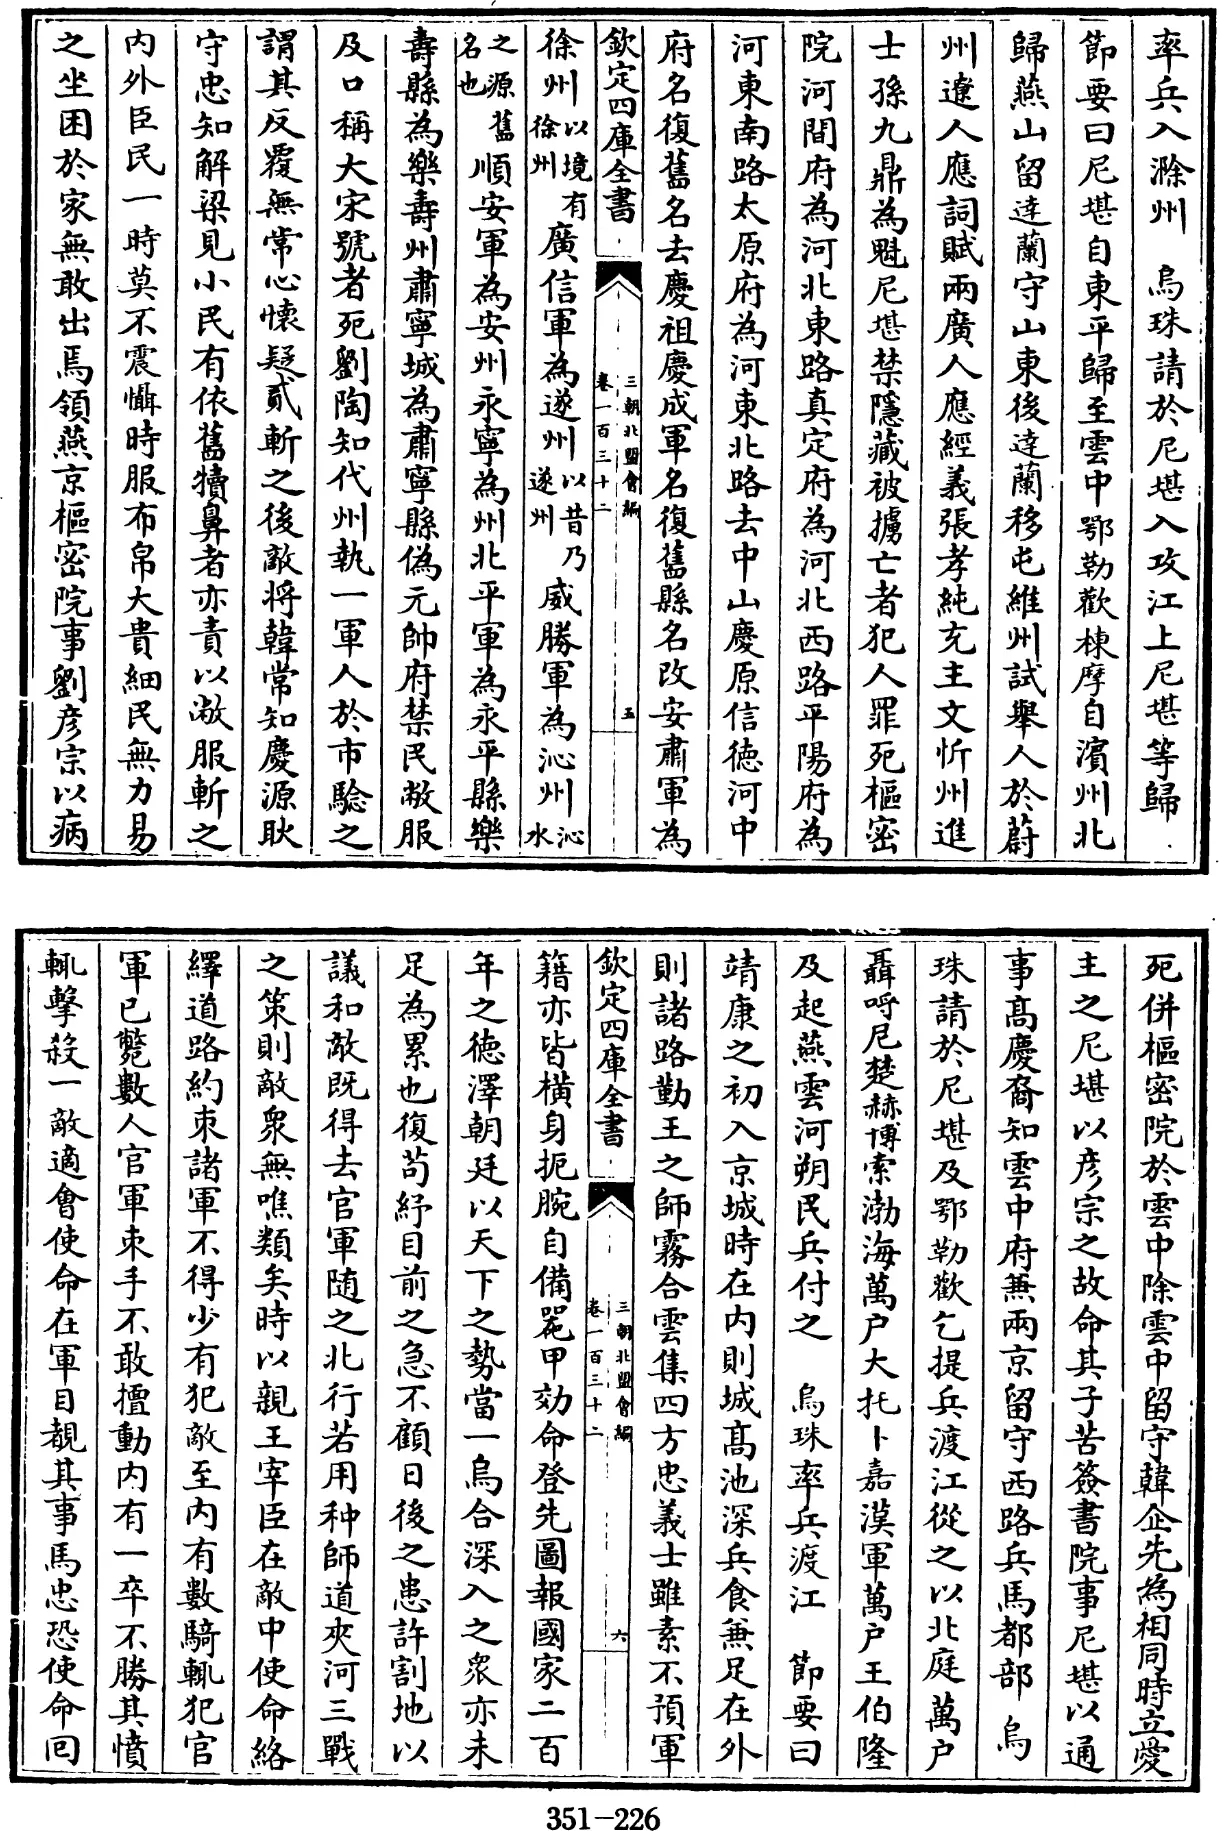 率兵入滁州　烏珠請於尼堪入攻江上尼堪等歸
節要曰尼堪自東平歸至雲中鄂勒歡棟摩自濱州北
歸燕山留達蘭守山東後達蘭移屯維州試舉人於蔚
州遼人應詞賦兩廣人應經義張孝純充主文忻州進
士孫九鼎為魁尼堪禁隱藏被擄亡者犯人罪死樞密
院河間府為河北東路真定府為河北西路平陽府為
河東南路太原府為河東北路去中山慶原信德河中
府名復舊名去慶祖慶成軍名復舊縣名改安肅軍為
欽定四庫全書
三朝北盟會編
卷一百三十二
五
徐州以境有徐州廣信軍為遂州以昔乃遂州威勝軍為沁州沁水
之源名也舊順安軍為安州永寧為州北平軍為永平縣樂
壽縣為樂壽州肅寧城為肅寧縣偽元帥府禁民敝服
及口稱大宋號者死劉陶知代州執一軍人於市驗之
謂其反覆無常心懷疑貳斬之後敵將韓常知慶源耿
守忠知解梁見小民有依舊犢鼻者亦責以敝服斬之
内外臣民一時莫不震懾時服布帛大貴細民無力易
之坐困於家無敢出焉領燕京樞密院事劉彦宗以病
死併樞密院於雲中除雲中留守韓企先為相同時立愛
主之尼堪以彦宗之故命其子苦簽書院事尼堪以通
事髙慶裔知雲中府兼兩京留守西路兵馬都部　烏
珠請於尼堪及鄂勒歡乞提兵渡江從之以北庭萬户
聶呼尼楚赫博索渤海萬户大托卜嘉漢軍萬户王伯隆
及起燕雲河朔民兵付之　烏珠率兵渡江　節要曰
靖康之初入京城時在内則城髙池深兵食兼足在外
則諸路勤王之師霧合雲集四方忠義士雖素不預軍
欽定四庫全書
三朝北盟會編
卷一百三十二
六
籍亦皆横身扼腕自備器甲効命登先圖報國家二百
年之德澤朝廷以天下之勢當一烏合深入之衆亦未
足為累也復苟紓目前之急不顧日後之患許割地以
議和敵既得去官軍随之北行若用种師道夾河三戰
之策則敵衆無噍類矣時以親王宰臣在敵中使命絡
繹道路約束諸軍不得少有犯敵至内有數騎輒犯官
軍已斃數人官軍束手不敢擅動内有一卒不勝其憤
輒擊殺一敵適會使命在軍目覩其事馬忠恐使命回
351-226